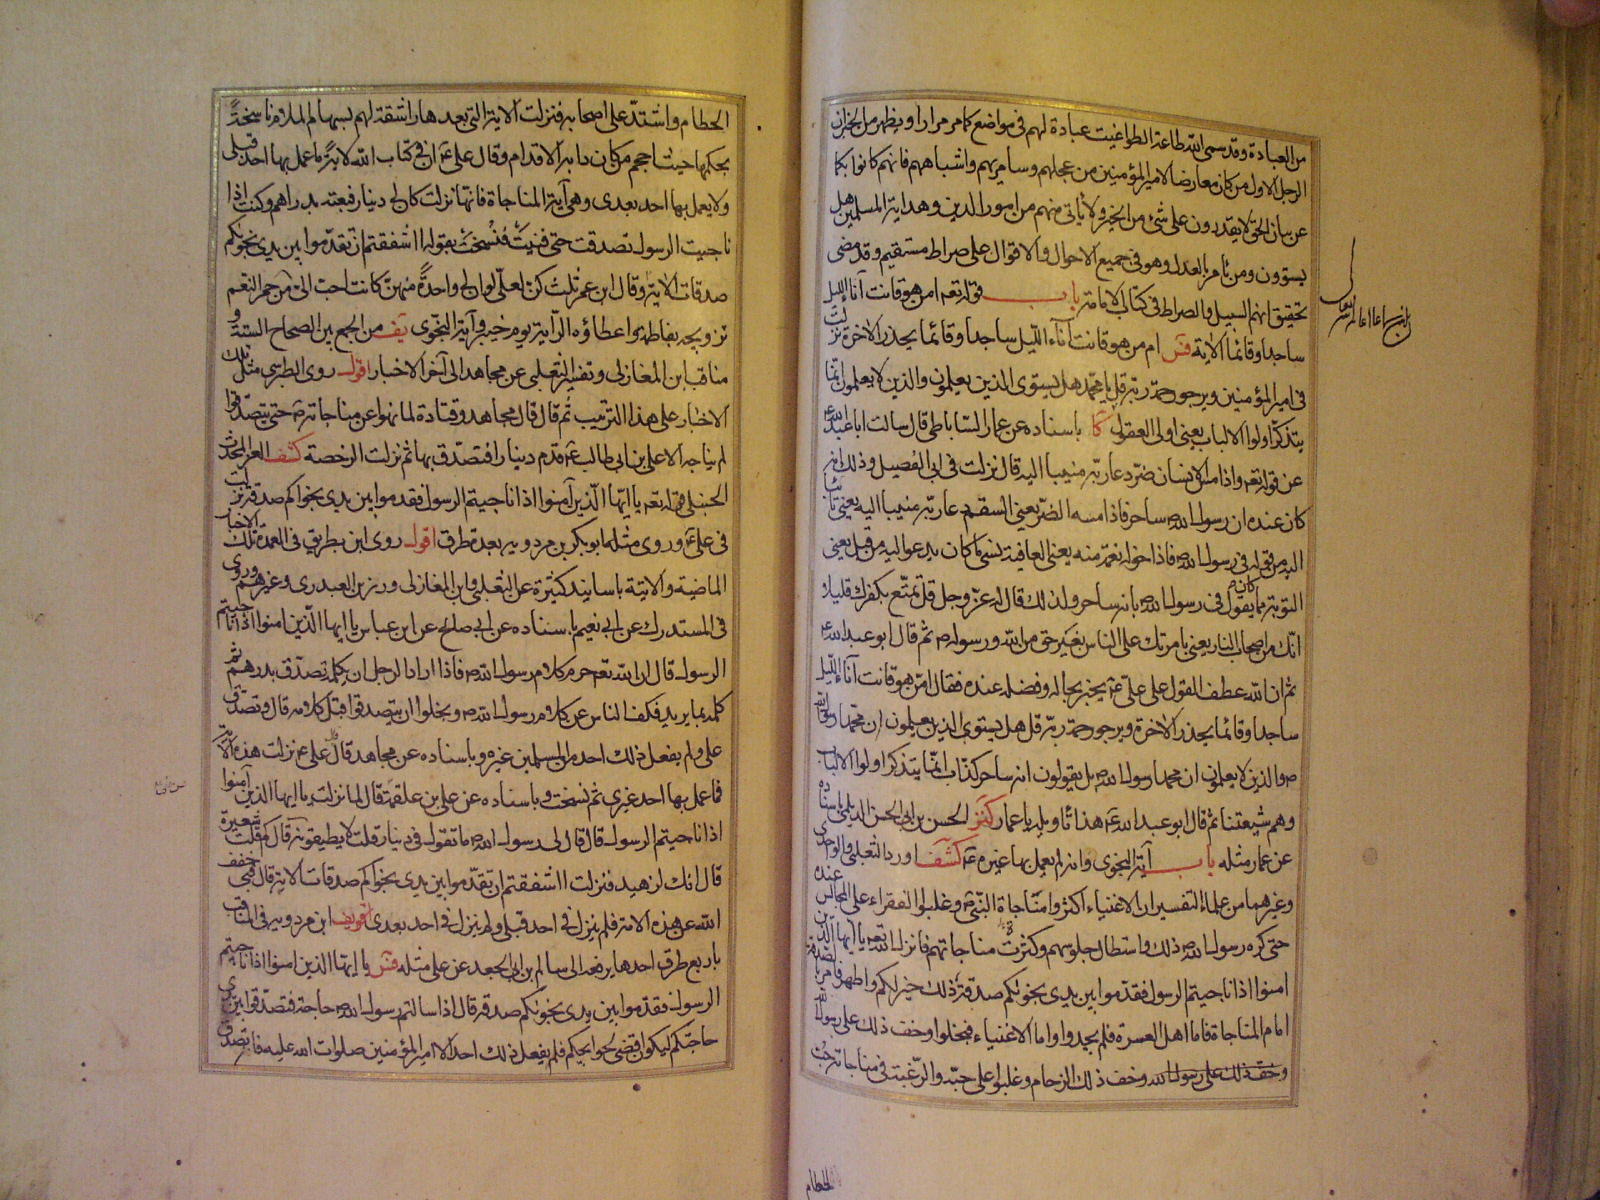 من العبادة وقد سمى الله طاعة الطواغيت عبادة لهم فى مواضع كما مر مرارا ويظهر من الخبر ان
الرجل الاول من كان معارضا لامير المؤمنين من عجلهم وسامريهم واشباههم فانهم كانوا بكما
عن بيان الحق لا يقدرون على شئ من الخير ولا يأتى منهم من امور الدين وهداية المسلمين هل
يستوون ومن يأمر بالعدل وهو فى جميع الاحوال والاقوال على صراط مستقيم وقد مضى
تحقيق انهم السبيل والصراط فى كتاب الامامة باب قوله تعه امن هو قانت آناء الليل
ساجدا وقائما الآية فس ام من هو قانت آناء الليل ساجدا وقائما يحذر الاخرة نزلت
فى امير المؤمنين ويرجو رحمة ربه قل يا محمد هل يستوى الذين يعلمون والذين لا يعلمون انما
يتذكر اولوا الالباب يعنى اولى العقول كا باسناده عن عمار الساباطى قال سالت ابا عبد الله ع
عن قوله تعه واذا مس الانسان ضر دعا ربه منيبا اليه قال نزلت فى ابى الفصيل وذلك انه
كان عنده ان رسول الله ص ساحر فاذا مسه الضر يعنى السقم دعا ربه منيبا اليه يعنى تائبا
اليه من قوله فى رسول الله ص فاذا خوله نعمة منه يعنى العافية نسى ما كان يدعو اليه من قبل يعنى
التوبة مما كان يقول فى رسول الله ص بانه ساحر ولذلك قال الله عز وجل قل تمتع بكفرك قليلا
انك من اصحاب النار يعنى بامرتك على الناس بغير حق من الله ورسوله ص ثم قال ابو عبد الله ع
ثم ان الله عطف القول على على ع يخبر بحاله وفضله عنده فقال امن هو قانت آناء الليل
ساجدا وقائما يحذر الاخرة ويرجو رحمة ربه قل هل يستوى الذين يعلمون ان محمدا رسول الله
ص والذين لا يعلمون ان محمدا رسول الله ص بل يقولون انه ساحر كذاب انما يتذكر اولوا الالباب
وهم شيعتنا ثم قال ابو عبد الله ع هذا تأويله يا عمار كنز الحسن بن ابى الحسن الديلمى باسناده
عن عمار مثله باب آية النجوى وانه لم يعمل بها غيره ع كشف اورد الثعلبى والواحدى
وغيرهما من علماء التفسير ان الاغنياء اكثروا مناجاة النبى ص وغلبوا الفقراء على المجالس عنده
حتى كره رسول الله ص ذلك واستطال جلوسهم وكثرت مناجاتهم فانزل الله تعه يا ايها الذين
امنوا اذا ناجيتم الرسول فقدموا بين يدى نجويكم صدقة ذلك خير لكم واطهر فامر بالصدقة
امام المناجاة فاما اهل العسرة فلم يجدوا واما الاغنياء فبخلوا وخف ذلك على رسول الله
وخف ذلك على رسول الله وخف ذلك الزحام وغلبوا على حبه والرغبة فى مناجاته حب
الحطام
الحطام واشتد على اصحابه فنزلت الاية التى بعدها راشقة لهم بسهام الملام ناسخة
بحكمها حيث احجم من كان دابه الاقدام وقال على ع ان فى كتاب الله لاية ما عمل بها احد قبلى
ولا يعمل بها احد بعدى وهى آية المناجاة فانها نزلت كان لى دينار فبعته بدراهم وكنت اذا
ناجيت الرسول تصدقت حتى فنيت فنسخت بقوله أ اشفقتم ان تقدموا بين يدى نجويكم
صدقات الاية وقال ابن عمر ثلث كن لعلى لو ان لى واحدة منهن كانت احب الى من حمر النعم
تزويجه بفاطمة واعطاؤه الراية يوم خيبر وآية النجوى يف من الجمع بين الصحاح الستة و
مناقب ابن المغازلى وتفسير الثعلبى عن مجاهد الى آخر الاخبار اقول روى الطبرسى مثل تلك
الاخبار على هذا الترتيب ثم قال قال مجاهد وقتادة لما نهوا عن مناجاته ص حتى يتصدقوا
لم يناجه الا على بن ابى طالب ع قدم دينارا فتصدق بها ثم نزلت الرخصة كشف العز المحدث
الحنبلى قوله تعه يا ايها الذين آمنوا اذا ناجيتم الرسول فقدموا بين يدى نجواكم صدقة نزلت
فى على ع وروى مثله ابو بكر بن مردويه بعدة طرق اقول روى ابن بطريق فى العمدة تلك الاخبار
الماضية والآتية باسانيد كثيرة عن الثعلبى وابن المغازلى ورزين العبدرى وغيرهم وروى
فى المستدرك عن ابى نعيم باسناده عن ابى صالح عن ابن عباس يا ايها الذين امنوا اذا ناجيتم
الرسول قال ان الله تعه حرم كلام رسول الله ص فاذا اراد الرجل ان يكلمه تصدق بدرهم ثم
كلمه بما يريد فكف الناس عن كلام رسول الله ص وبخلوا ان يتصدقوا قبل كلامه قال وتصدق
على ولم يفعل ذلك احد من المسلمين غيره وباسناده عن مجاهد قال قال على ع نزلت هذه الآية
فما عمل بها احد غيرى ثم نسخت وباسناده عن على بن علقمة قال لما نزلت يا ايها الذين آمنوا
اذا ناجيتم الرسول قال قال لى رسول الله ص ما تقول فى دينار قلت لا يطيقونه قال كم قلت شعيرة
قال انك لزهيد فنزلت أ اشفقتم ان تقدموا بين يدى نجواكم صدقات الاية قال فبى خفف
الله عن هذه الامة فلم ينزل فى احد قبلى ولم ينزل فى احد بعدى اقول ابن مردويه فى المناقب
باربع طرق احدها يرفعه الى سالم بن ابى الجعد عن على مثله فس يا ايها الذين امنوا اذا ناجيتم
الرسول فقدموا بين يدى نجويكم صدقة قال اذا سالتم رسول الله ص حاجة فتصدقوا بين يدى
حاجتكم ليكون اقضى لحوايجكم فلم يفعل ذلك احد الا امير المؤمنين صلوات الله عليه فانه تصدق